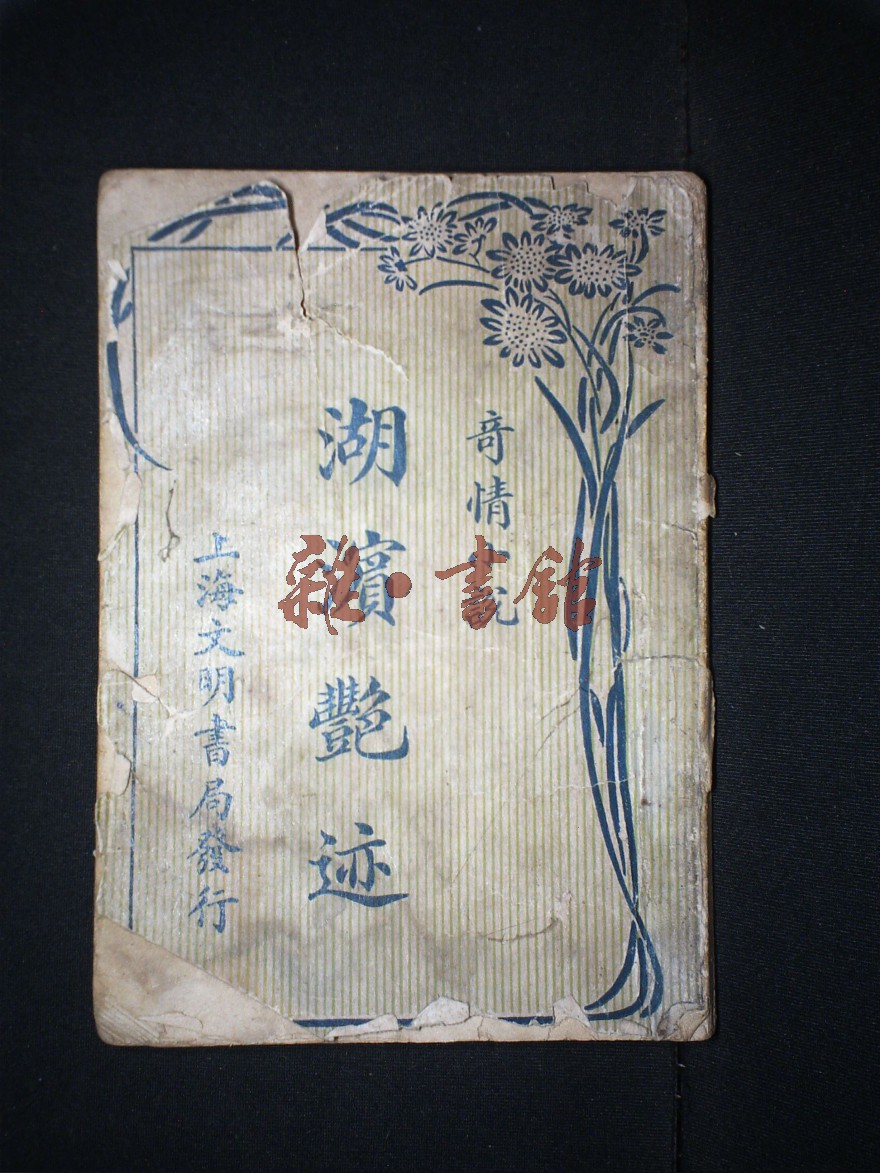 奇情小說
湖濱艷迹
上海文明書局發行
雜·書館